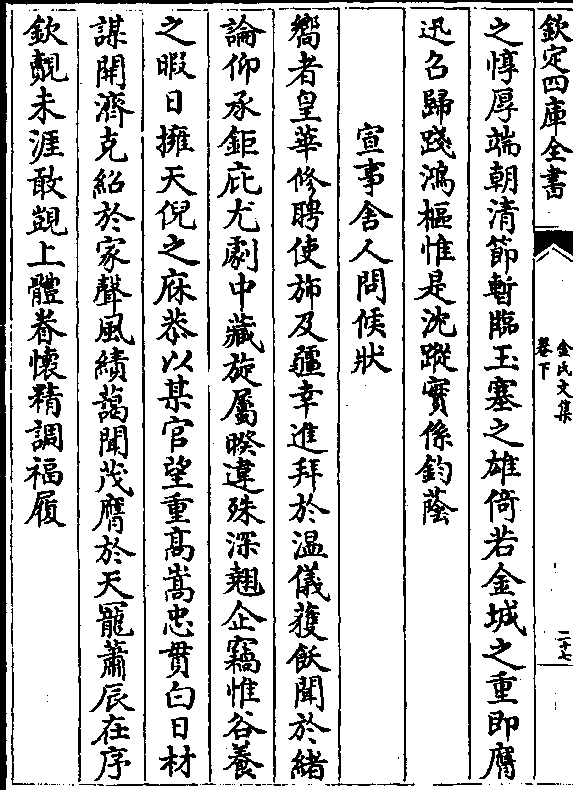 欽定四庫全書
金氏文集
卷下
二十七
之惇厚端朝清節暫臨玉塞之雄倚若金城之重即膺
迅召歸踐鴻樞惟是沈蹤實係鈞蔭
宣事舍人問候狀
嚮者皇華修聘使斾及疆幸進拜於温儀獲飫聞於緒
論仰承鉅庇尤劇中藏旋屬暌違殊深翹企竊惟谷養
之暇日擁天倪之庥恭以某官望重髙嵩忠貫白日材
謀開濟克紹於家聲風績藹聞茂膺於天寵蕭辰在序
欽覿未涯敢覬上體眷懷精調福履